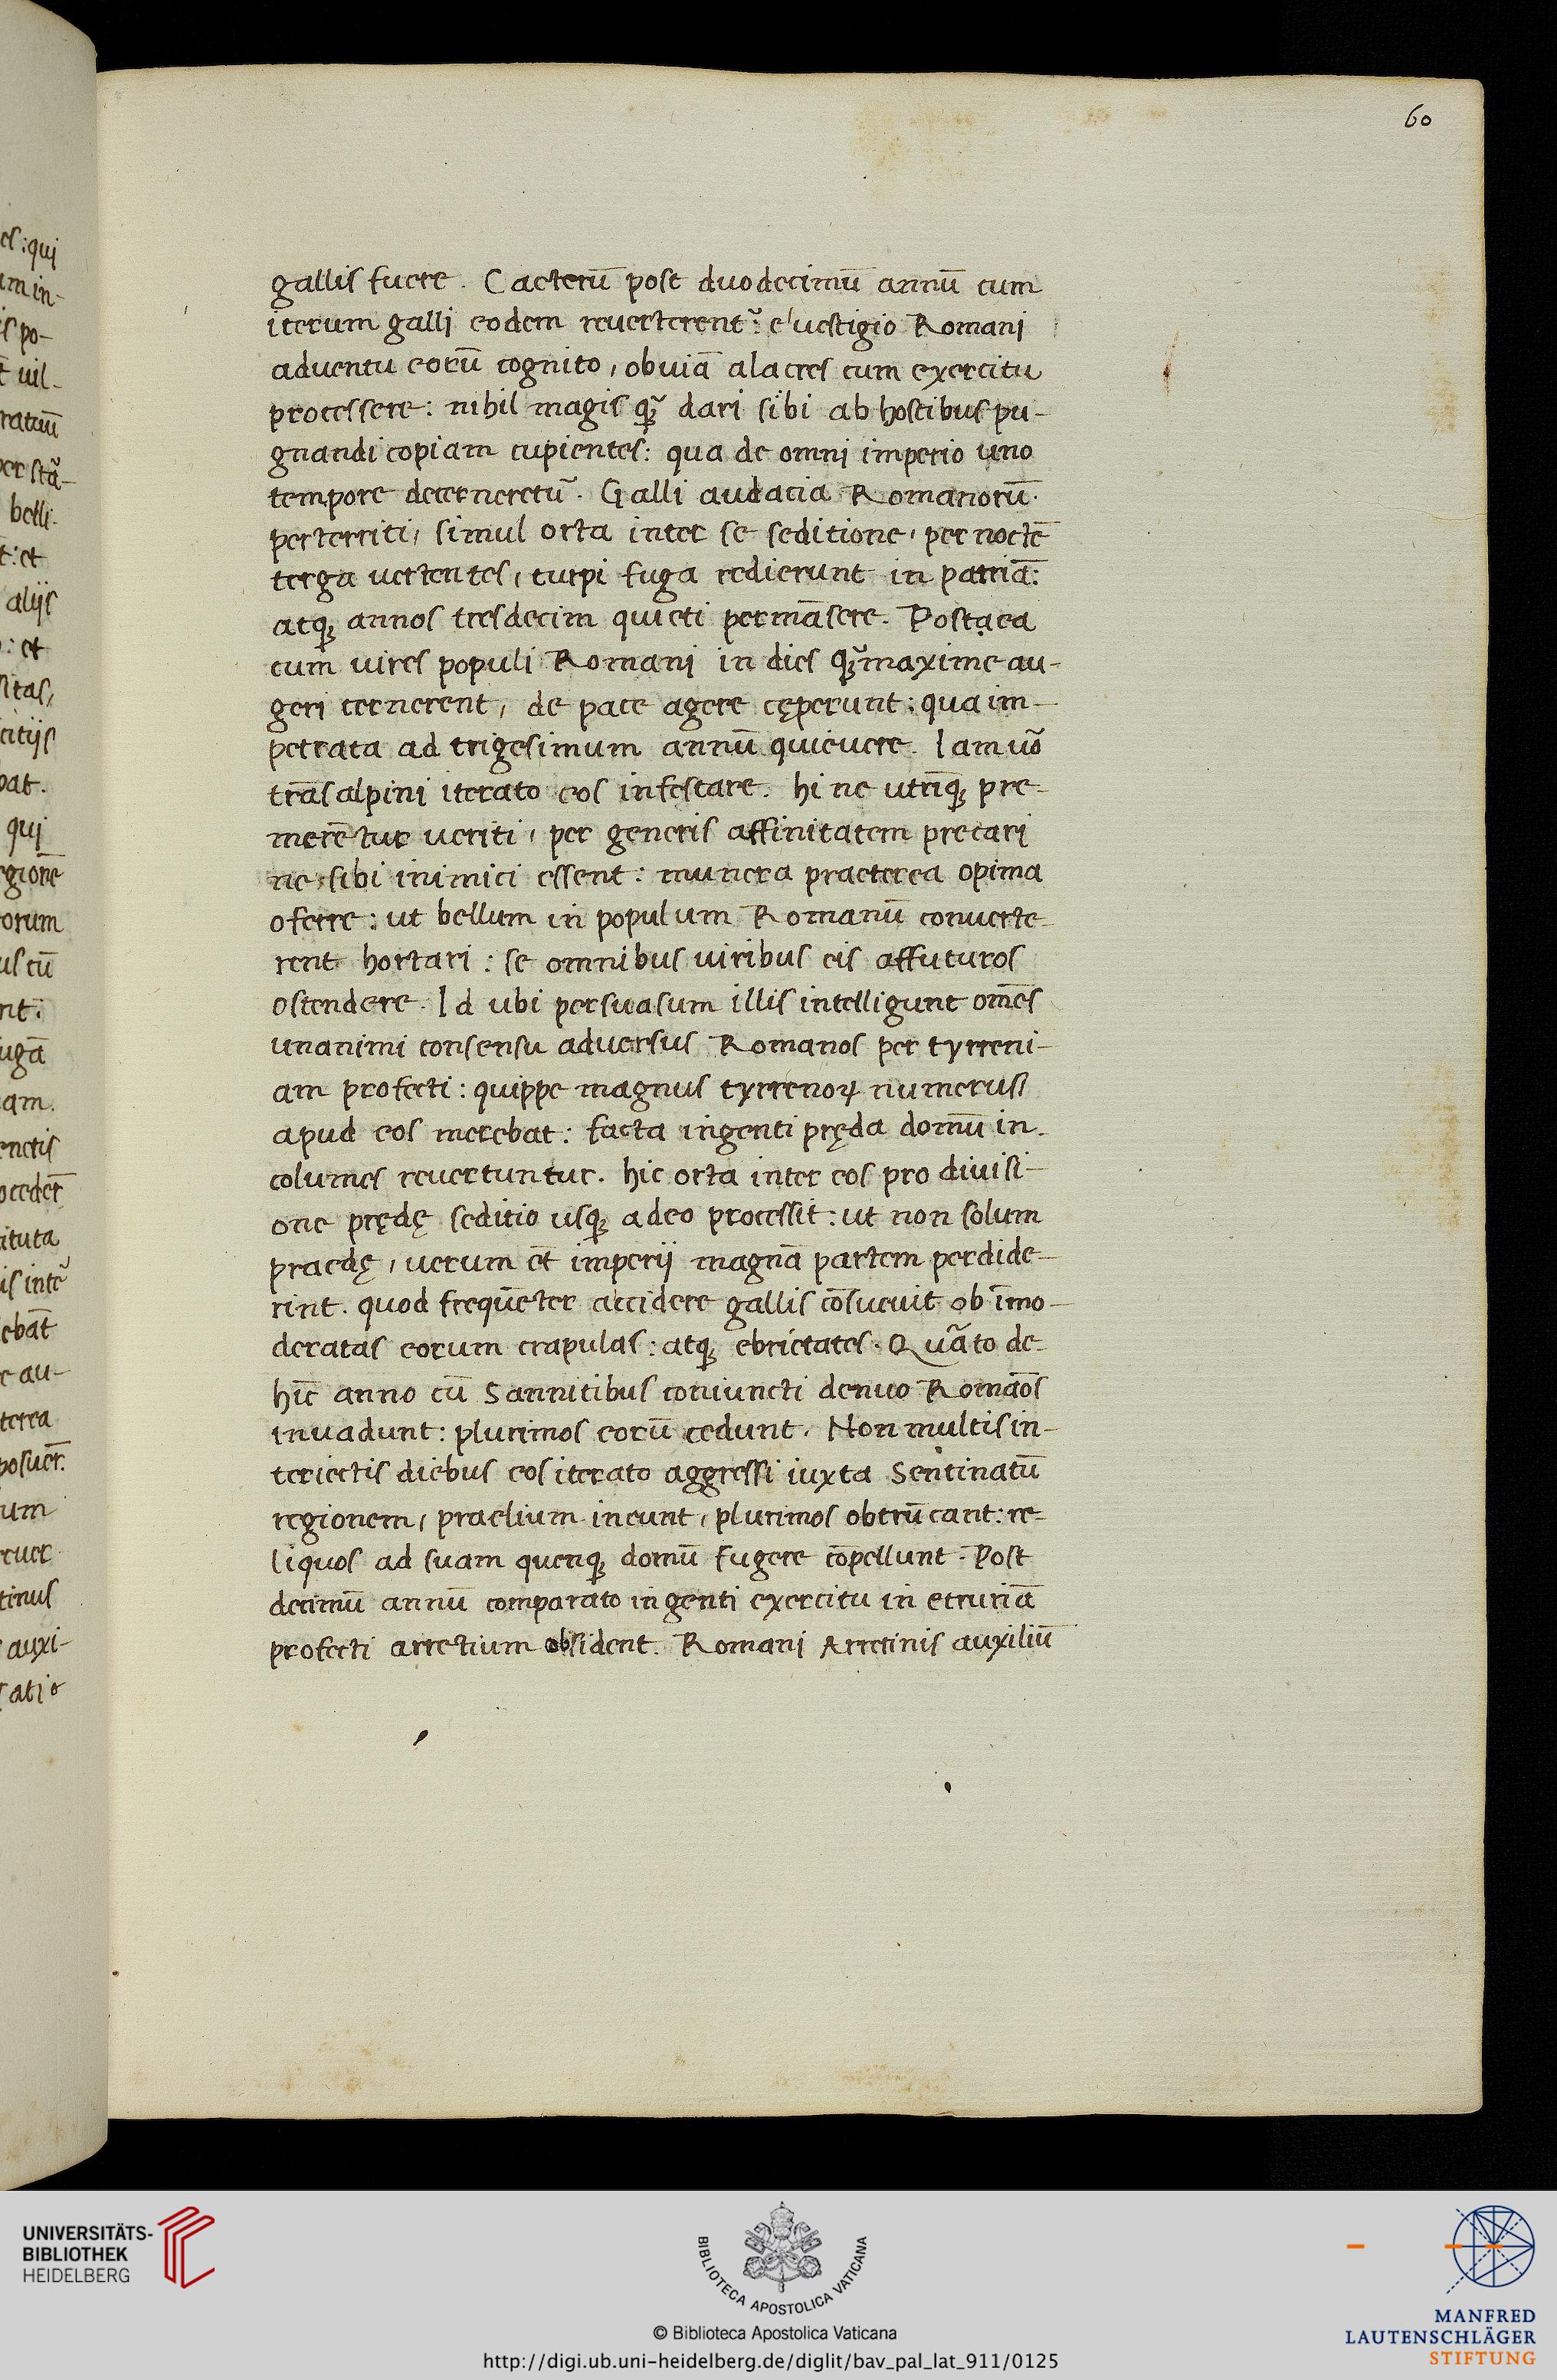 60
gallis fuere. Caeterū post duodecimū annū cum
iterum galli eodem reuerterent᷑: e'uestigio Romani
aduentu eorū cognito, obuiā alacres cum exercitu
processere: nihil magis qȝ̃ dari sibi ab hostibus pu-
gnandi copiam cupientes: qua de omni imperio uno
tempore decerneretu᷑. Galli audacia Romanorū
perterriti, simul orta inter se seditione, per noctē
terga uertentes, turpi fuga redierunt in patriā:
atqȝ annos tresdecim quieti permāsere. Postaea
cum uires populi Romani in dies qȝ̃maxime au-
geri cernerent, de pace agere cęperunt: qua im-
petrata ad trigesimum annū quieuere. Iam uo᷑
trāsalpini iterato eos infestare. hi ne utrīqȝ pre-
merētur ueriti, per generis affinitatem precari
ne sibi inimici essent: munera praeterea opima
oferre: ut bellum in populum Romanū conuerte-
rent hortari: se omnibus uiribus eis affuturos
ostendere. Id ubi persuasum illis intelligunt omēs
unanimi consensu aduersus Romanos per tyrreni-
am profecti: quippe magnus tyrrenoꝝ numerus
apud eos merebat: facta ingenti pręda domū in-
columes reuertuntur. hic orta inter eos pro diuisi-
one prędę seditio usqȝ adeo processit: ut non solum
praedę, uerum et̄ imperij magnā partem perdide-
rint. quod frequēter accidere gallis cōsueuit ob īmo-
deratas eorum crapulas: atqȝ ebrietates. Quãto de-
hīc anno cū Sannitibus coniuncti denuo Romāos
inuadunt: plurimos eorū cedunt. Non multis in-
teriectis diebus eos iterato aggressi iuxta Sentinatū
regionem, praelium ineunt, plurimos obtrūcant: re-
liquos ad suam quenqȝ domū fugere cōpellunt. Post
decimū annū comparato ingenti exercitu in etruriā
profecti arretium obsident. Romani Arretinis auxiliū
es: qui
am in-
is po-
uil-
ratiū
belli-
t: et
alijs
: et
sitas,
citijs
bat.
qui
egionē
orum
us cū
nt:
ugā
am.
enetis
ituta
ebāt
e au-
terea
um
tinus
auxi-
UNIVERSITÄTS-
BIBLIOTHEK
HEIDELBERG
BIBLIOTECA APOSTOLICA VATICANA
© Biblioteca Apostolica Vaticana
http://digi.ub.uni-heidelberg.de/diglit/bav_pal_lat_911/0125
MANFRED
LAUTENSCHLÄGER
STIFTUNG